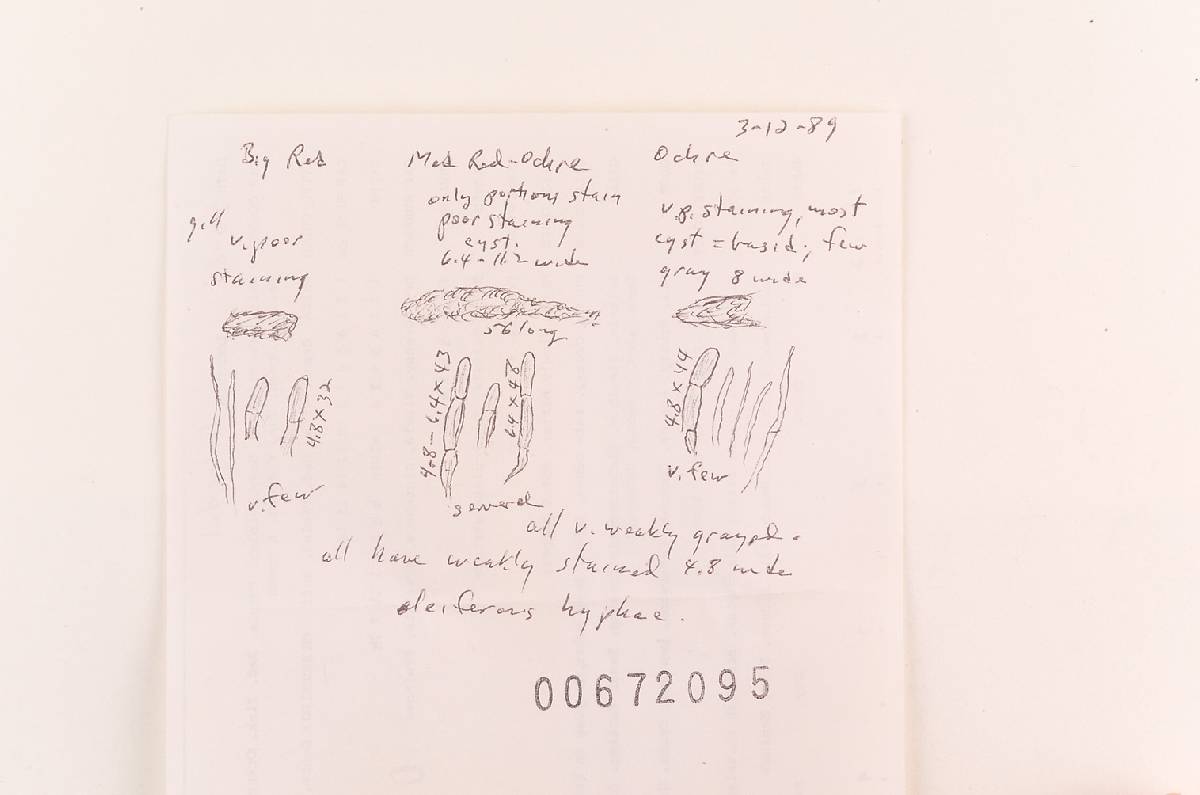 3-12-89
Big Red
gill
v. poor
staining
4.8 x 32
v. few
Med Red-Ochre
only portions stain
poor staining
cyst.
6.4 - 11.2 wide
56 long
4.8 - 6.4 x 43
6.4 x 48
several
Ochre
v.p. staining, most
cyst = basid; few
gray 8 wide
4.8 x 44
v. few
all v. weakly grayed.
all have weakly stained 4.8 wide
oleiferous hyphae.
00672095